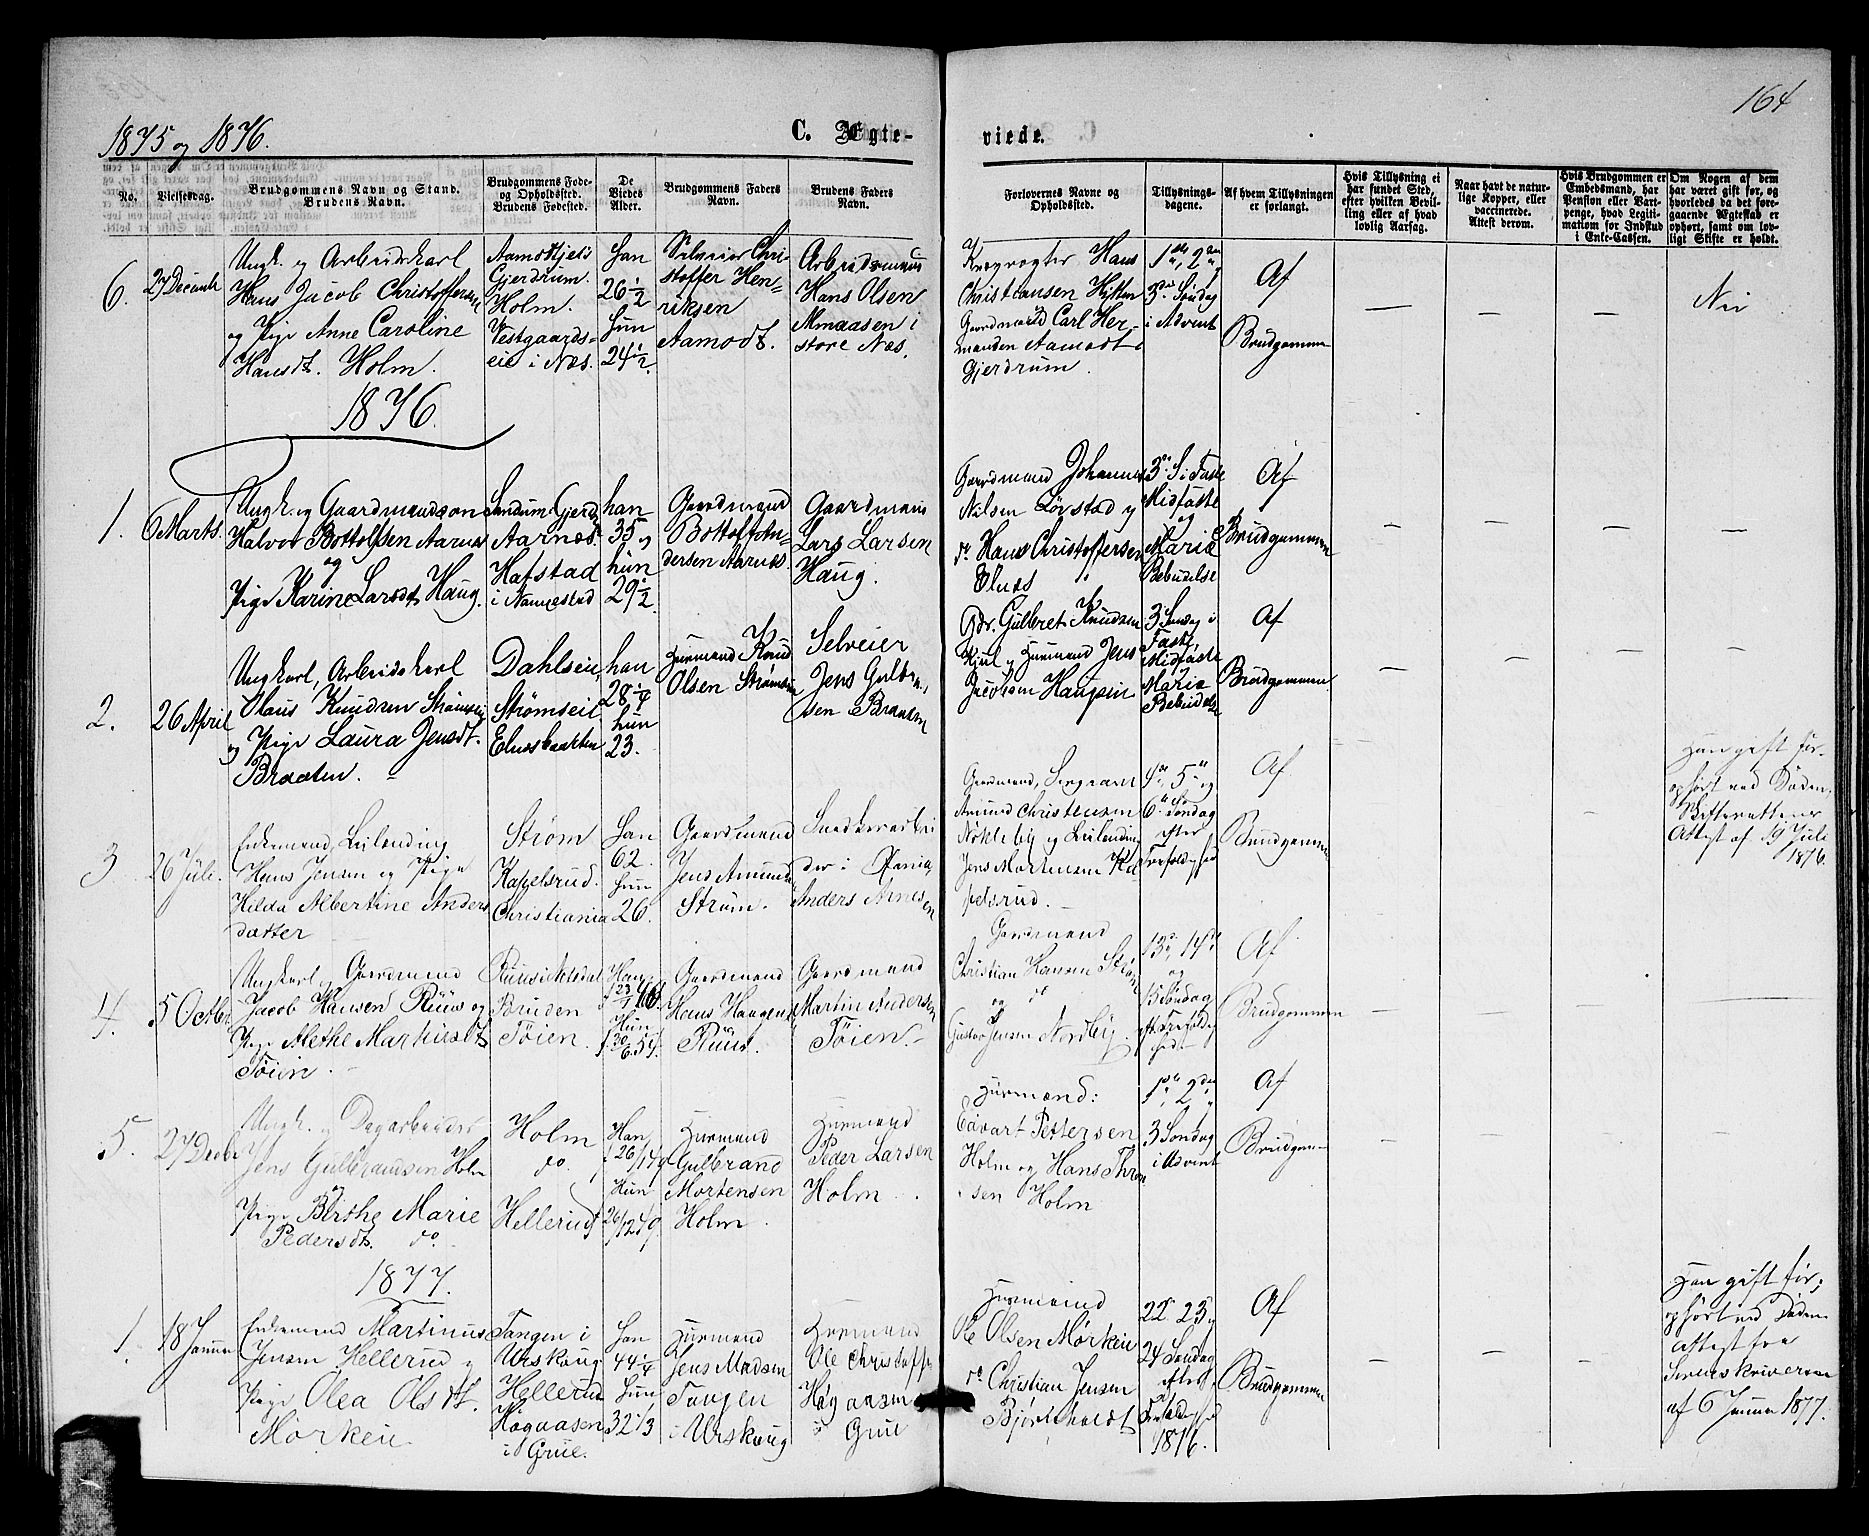 164
1875 og 1876.
C. Ægte-
viede.
No.
Vielsesdag.
Brudgommens Navn og Stand.
Brudens Navn.
Brudgommens Føde-
og Opholdssted.
Brudens Fødested.
De
Viedes
Alder.
Brudgommens Faders
Navn.
Brudens Faders
Navn.
Forlovernes Navne og
Opholdssted.
Tillysnings-
dagene.
Af hvem Tillysningen
er forlangt.
Hvis Tillysning ei
har fundet Sted,
efter hvilken Bevil-
ling eller af hvad
lovlig Aarsag.
Naar havt de natur-
lige Kopper, eller
vaccinerede.
Attest derom.
Hvis Brudgommen er
Embedsmand, har
Pension eller Vart-
penge, hvad Legiti-
mation for Indskud
i Enke-Cassen.
Om Nogen af dem
har været gift før, og
hvorledes da det fore-
gaaende Ægteskab er
ophørt, samt om lov-
ligt Skifte er holdt.
6.
27 Decemb
Ungk. og Arbeidskarl
Hans Jacob Christoffersen
og Pige Anne Caroline
Hansdt. Holm.
Gjerdrum.
Holm.
Vestgaards-
eie i Næs.
Han
26 1/2
Hun
24 1/2.
Selveier Chri-
stoffer Hen-
riksen
Aamodt.
Arbeidsmand
Hans Olsen
Almaasen i
store Næs.
Hans
Christiansen
Gaardmand Carl Her-
mansen Aamodt i
Gjerdrum.
1ste, 2den
3die Søndag
i Advent
Af
Brudgommen
—
—
—
Nei
1876.
1.
6 Marts.
Ungk. og Gaardmandsøn
Halvor Bottolfsen Aarnæs
og
Pige Karine Larsdt. Haug.
Aarnæs.
Hafstad
i Nannestad
han
35 og
hun
29 1/2.
Gaardmand
Bottolf An-
dersen Aarnæs.
Gaardmand
Lars Larsen
Haug.
Gaardmand Johannes
Nilsen Løvstad og
do Hans Christoffersen
Elnæs
3die S. i Faste
Midfaste
og
Mariæ
Bebudelse
Af
Brudgommen
—
—
—
—
2.
26 April
Ungkarl, Arbeidskarl
Olaus Knudsen Strømseie
og Pige Laura Jensdt.
Braaten.
Dahlseie,
Strømseie
Elnæsbraaten
han
28 1/4
hun
23.
Huusmand Knud
Olsen Strømseie
Selveier
Jens Gulbran-
sen Braaten
Gdr. Gulbret Knudsen
Kjul og Huusmand Jens
Jacobsen Haugseie
3 Søndag i
Faste,
Midfaste
Mariæ
Bebudelse
Af
Brudgommen
—
—
—
—
3
26 Juli.
Enkemand, Leilænding
Hans Jensen og Pige
Hilda Albertine Anders
datter
Strøm
Kapelsrud.
Christiania
Han
62.
Hun
26.
Gaardmand
Jens Amunds
Strøm.
Snedkerarbei
der i Xania,
Anders Arnesen
Gaardmand,
Amund Christensen
Nokleby og Leilænding
Jens Mortensen Ka
pelsrud.
4de, 5te og
6te Søndag
efter
Trefoldighed
Af
Brudgommen
—
—
—
Han gift før,
ophørt ved Døden,
Skifterettens
Attest af 19 Juli
1876.
4.
5 Octbr
Ungkarl, Gaardmand
Jacob Hansen Ruus og
Pige Alethe Martinsdt.
Töien.
Bruden
Töien.
Han
f. 23/1 46.
Hun
f. 30/6 54.
Gaardmand
Hans Haagens
Ruus.
Gaardmand
Martin Andersen
Töien.
Gaardmand
Christian Hansen Strøm
og do
Gustav Jensen Nordby.
13de, 14de
og
15 Søndag
eft. Trefoldig
hed.
Af
Brudgommen
—
—
—
5.
27 Decbr
Ungk. og Dagarbeider
Jens Gulbrandsen Holm
og
Pige Birthe Marie
Pedersdt. do.
Holm
do.
Hellerud
Han
f 26/1 49
Hun
26/12 49.
Huusmand
Gulbrand
Mortensen
Holm.
Huusmand
Peder Larsen
Holm.
Huusmænd:
Edvart Pettersen
Holm og Hans Thron
sen Holm
1ste, 2den
3 Søndag
i Advent
Af
Brudgommen
—
—
—
—
1877.
1.
18 Januar
Enkemand Martinus
Jensen Hellerud og
Pige Olea Olsdt.
Mørkeie
Tangen i
Urskoug
Hellerud
Høgaasen
i Grue.
Han
44 1/4
Hun
32 1/3
Huusmand
Jens Madsen
Tangen
i Urskoug
Huusmand
Ole Christoff.
Høgaasen
i Grue
Huusmænd
Ole Olsen Mørkeie
do Christian Jensen
Bjørkholdt
22, 23 og
24 Søndag
efter
Trefoldighed
1876.
Af
Brudgommen
—
—
—
Han gift før;
ophørt ved Døden
Attest fra
Sorenskriveren
af 6 Januar 1877.